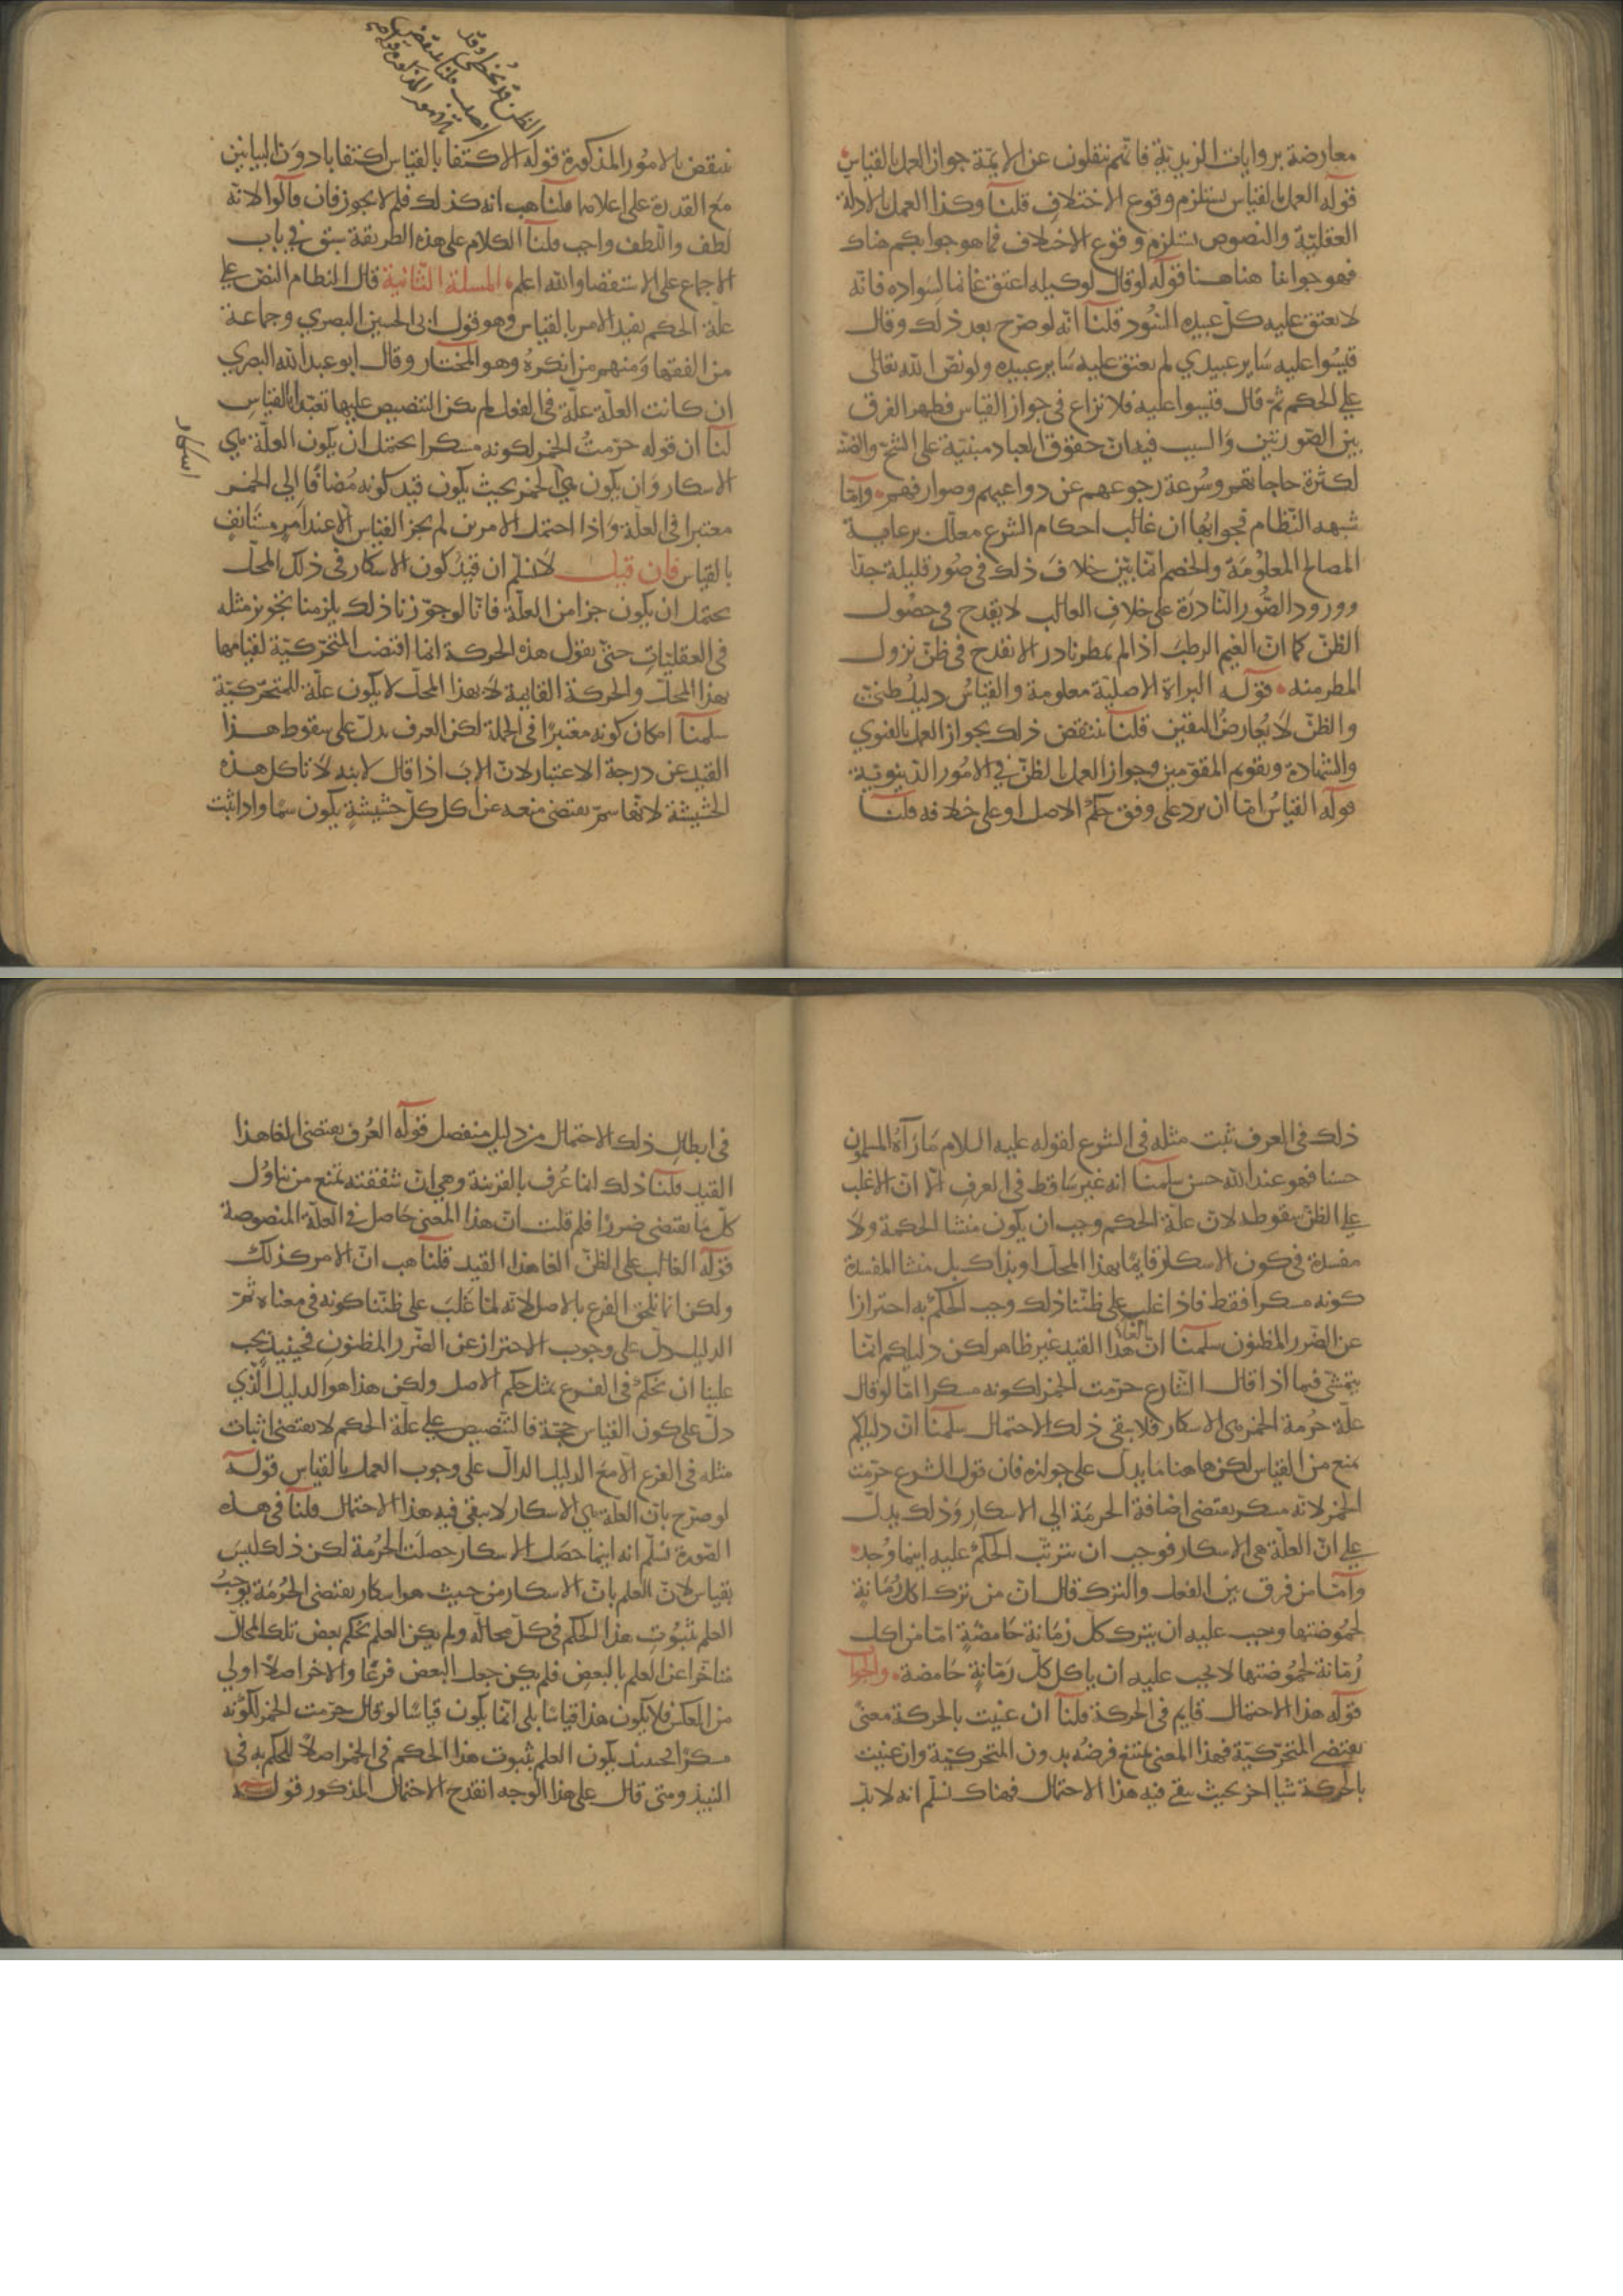 معارضة بروايات الزيدية فانهم ينقلون عن الايمة جواز العمل بالقياس
قوله العمل بالقياس يستلزم وقوع الاختلاف قلنا وكذا العمل بالادلة
العقلية والنصوص يستلزم وقوع الاختلاف فما هو جوابكم هناك
فهو جوابنا هاهنا قوله لو قال لوكيله اعتق غانما لسواده فانه
لا يعتق عليه كل عبيده السود قلنا انه لو صرح بعد ذلك وقال
قيسوا عليه ساير عبيدي لم يعتق عليه ساير عبيده ولو نص الله تعالى
على الحكم ثم قال قيسوا عليه فلا نزاع في جواز القياس فظهر الفرق
بين الصورتين والسبب فيه ان حقوق العباد مبنية على الشح والضنة
لكثرة حاجاتهم وسرعة رجوعهم عن دواعيهم وصوارفهم واما
شبهه النظام فجوابها ان غالب احكام الشرع معلل برعاية
المصالح المعلومة والخصم انما بين خلاف ذلك في صور قليلة جدا
وورود الصور النادرة على خلاف الغالب لا يقدح في حصول
الظن كما ان الغيم الرطب اذا لم يمطر نادرا لا يقدح في ظن نزول
المطر منه قوله البراة الاصلية معلومة والقياس دليل ظني
والظن لا يعارض اليقين قلنا ننتقض ذلك بجواز العمل بالفتوي
والشهادة وتقويم المقومين وجواز العمل بالظن في الامور الدنيوية
قوله القياس اما ان يرد على وفق حكم الاصل او على خلافه قلنا
ينتقض بالامور المذكورة قوله الاكتفا بالقياس اكتفا بادون البيانين
مع القدرة على اعلاهما قلنا هب انه كذلك فلم لا يجوز فان قالوا لانه
لطف واللطف واجب قلنا الكلام على هذه الطريقة سبق في باب
الاجماع على الاستقصا والله اعلم المسلة الثانية قال النظام النص على
علة الحكم يفيد الامر بالقياس وهو قول ابي الحسين البصري وجماعة
من الفقها ومنهم من انكره وهو المختار وقال ابو عبد الله البصري
ان كانت العلة علة في الفعل لم يكن التنصيص عليها تعبدا بالقياس
لنا ان قوله حرمت الخمر لكونه مسكرا يحتمل ان يكون العلة هي
الاسكار وان يكون هي الخمر بحيث يكون قيد كونه مضافا الي الخمر
معتبرا في العلة واذا احتمل الامرين لم يجز القياس الا عند امر مستانف
بالقياس فان قيل لا نسلم ان قيد كون الاسكار في ذلك المحل
يحتمل ان يكون جزا من العلة فانا لو جوزنا ذلك يلزمنا تجويز مثله
في العقليات حتى نقول هذه الحركة انما اقتضت المتحركية لقيامها
بهذا المحل والحركة القايمة لا بهذا المحل لا يكون علة للمتحركية
سلمنا امكان كونه معتبرا في الجملة لكن العرف يدل على سقوط هذا
القيد عن درجة الاعتبار لان الاب اذا قال لابنه لا تاكل هذه
الحشيشة لانها سم يقتضى منعه عن اكل كل حشيشة يكون سما واذا ثبت
اسكار
ذلك في العرف ثبت مثله في الشرع لقوله عليه السلام ما رآه المسلمون
حسنا فهو عند الله حسن سلمنا انه غير ساقط في العرف الا ان الاغلب
على الظن سقوطه لان علة الحكم وجب ان يكون منشا الحكمة ولا
مفسدة في كون الاسكار قايما بهذا المحل او بذاك بل منشا المفسدة
كونه مسكرا فقط فاذا غلب على ظننا ذلك وجب الحكم به احترازا
عن الضرر المظنون سلمنا ان الغا هذا القيد غير ظاهر لكن دليلكم انما
يتمشى فيما اذا قال الشارع حرمت الخمر لكونه مسكرا اما لو قال
علة حرمة الخمر هى الاسكار فلا يبقى ذلك الاحتمال سلمنا ان دليلكم
يمنع من القياس لكن هاهنا ما يدل على جوازه فان قول الشرع حرمت
الخمر لانه مسكر يقتضى اضافة الحرمة الي الاسكار وذلك يدل
على ان العلة هى الاسكار فوجب ان يترتب الحكم عليه اينما وجد
واما من فرق بين الفعل والترك قال ان من ترك اكل رمانة
لحموضتها وجب عليه ان يترك كل رمانة حامضة اما من اكل
رمانة لحموضتها لا يجب عليه ان ياكل كل رمانة حامضة والجواب
قوله هذا الاحتمال قايم في الحركة قلنا ان عنيت بالحركة معنى
يقتضي المتحركية فهذا المعنى يمتنع فرضه بدون المتحركية وان عنيت
بالحركة شيا اخر بحيث يبقى فيه هذا الاحتمال فهناك نسلم انه لا بد
في ابطال ذلك الاحتمال من دليل منفصل قوله العرف يقتضى الغا هذا
القيد قلنا ذلك انما عرف بالقرينة وهي ان شفقته تمنع من تناول
كل ما يقتضى ضررا فلم قلت ان هذا المعنى حاصل في العلة المنصوصة
قوله الغالب على الظن الغا هذا القيد قلنا هب ان الامر كذلك
ولكن انما نلحق الفرع بالاصل لانه لما غلب على ظننا كونه في معناه ثم
الدليل دل على وجوب الاحتراز عن الضرر المظنون فحينيذ يجب
علينا ان نحكم في الفرع بمثل حكم الاصل ولكن هذا هو الدليل الذي
دل على كون القياس حجة فالتنصيص علي علة الحكم لا يقتضى اثبات
مثله في الفرع الا مع الدليل الدال على وجوب العمل بالقياس قوله
لو صرح بان العلة هي الاسكار لا يبقى فيه هذا الاحتمال قلنا في هذه
الصورة نسلم انه اينما حصل الاسكار حصلت الحرمة لكن ذلك ليس
بقياس لان العلم بان الاسكار من حيث هو اسكار يقتضى الحرمة يوجب
العلم بثبوت هذا الحكم في كل محاله ولم يكن العلم بحكم بعض تلك المحال
متاخرا عن العلم بالبعض فلم يكن جعل البعض فرعا والاخر اصلا اولي
من العكس فلا يكون هذا قياسا بلى انما يكون قياسا لو قال حرمت الخمر لكونه
مسكرا فحينيذ يكون العلم بثبوت هذا الحكم في الخمر اصلا للحكم به في
النبيذ ومتى قال على هذا الوجه انقدح الاحتمال المذكور قوله